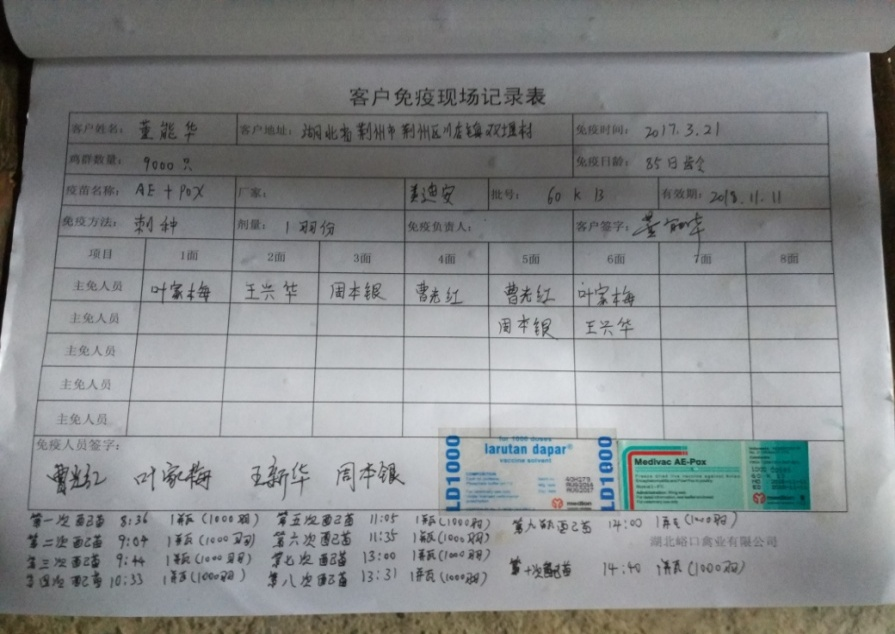 客户免疫现场记录表
客户姓名： 董能华 客户地址： 湖北省荆州市荆州区川店镇双堰村 免疫时间： 2017.3.21
鸡群数量： 9000只 免疫日龄： 85日龄
疫苗名称： AE+POX 厂家： 美迪安 批号： 60 K 13 有效期： 2018.11.11
免疫方法： 刺种 剂量： 1羽份 免疫负责人： 客户签字： 董能华
项目 1面 2面 3面 4面 5面 6面 7面 8面
主免人员 叶家梅 王兴华 周本银 曹光红 曹光红 叶家梅
主免人员 周本银 王兴华
主免人员
主免人员
主免人员
免疫人员签字：
曹光红 叶家梅 王新华 周本银
LD1000
for 1000 doses
larutan dapar
vaccine solvent
LD1000
Medivac AE-Pox
medion
第一次配苗 8:36 1瓶(1000羽) 第五次配苗 11:05 1瓶(1000羽) 第九次配苗 14:00 1瓶(1000羽)
第二次配苗 9:04 1瓶(1000羽) 第六次配苗 11:35 1瓶(1000羽) 湖北峪口禽业有限公司
第三次配苗 9:44 1瓶(1000羽) 第七次配苗 13:00 1瓶(1000羽)
第四次配苗 10:33 1瓶(1000羽) 第八次配苗 13:31 1瓶(1000羽) 第十次配苗 14:40 1瓶(1000羽)